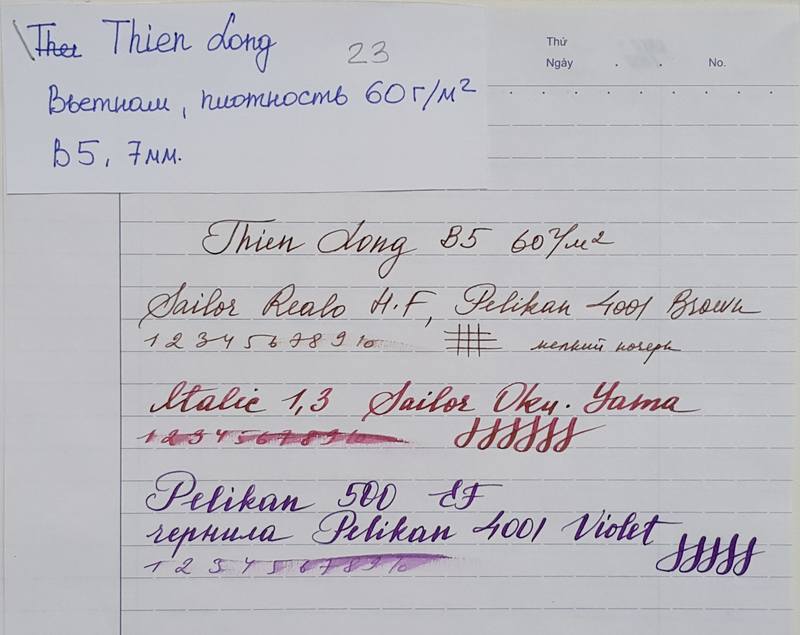 Thien Long 23
Вьетнам, плотность 60 г/м²
B5, 7мм.
Thứ
Ngày . . No.
Thien Long B5 60 г/м²
Sailor Realo H.F, Pelikan 4001 Brown
1 2 3 4 5 6 7 8 9 10 мелкий почерк
Italic 1,3 Sailor Oku-Yama
1 2 3 4 5 6 7 8 9 10
Pelikan 500 EF
чернила Pelikan 4001 Violet
1 2 3 4 5 6 7 8 9 10